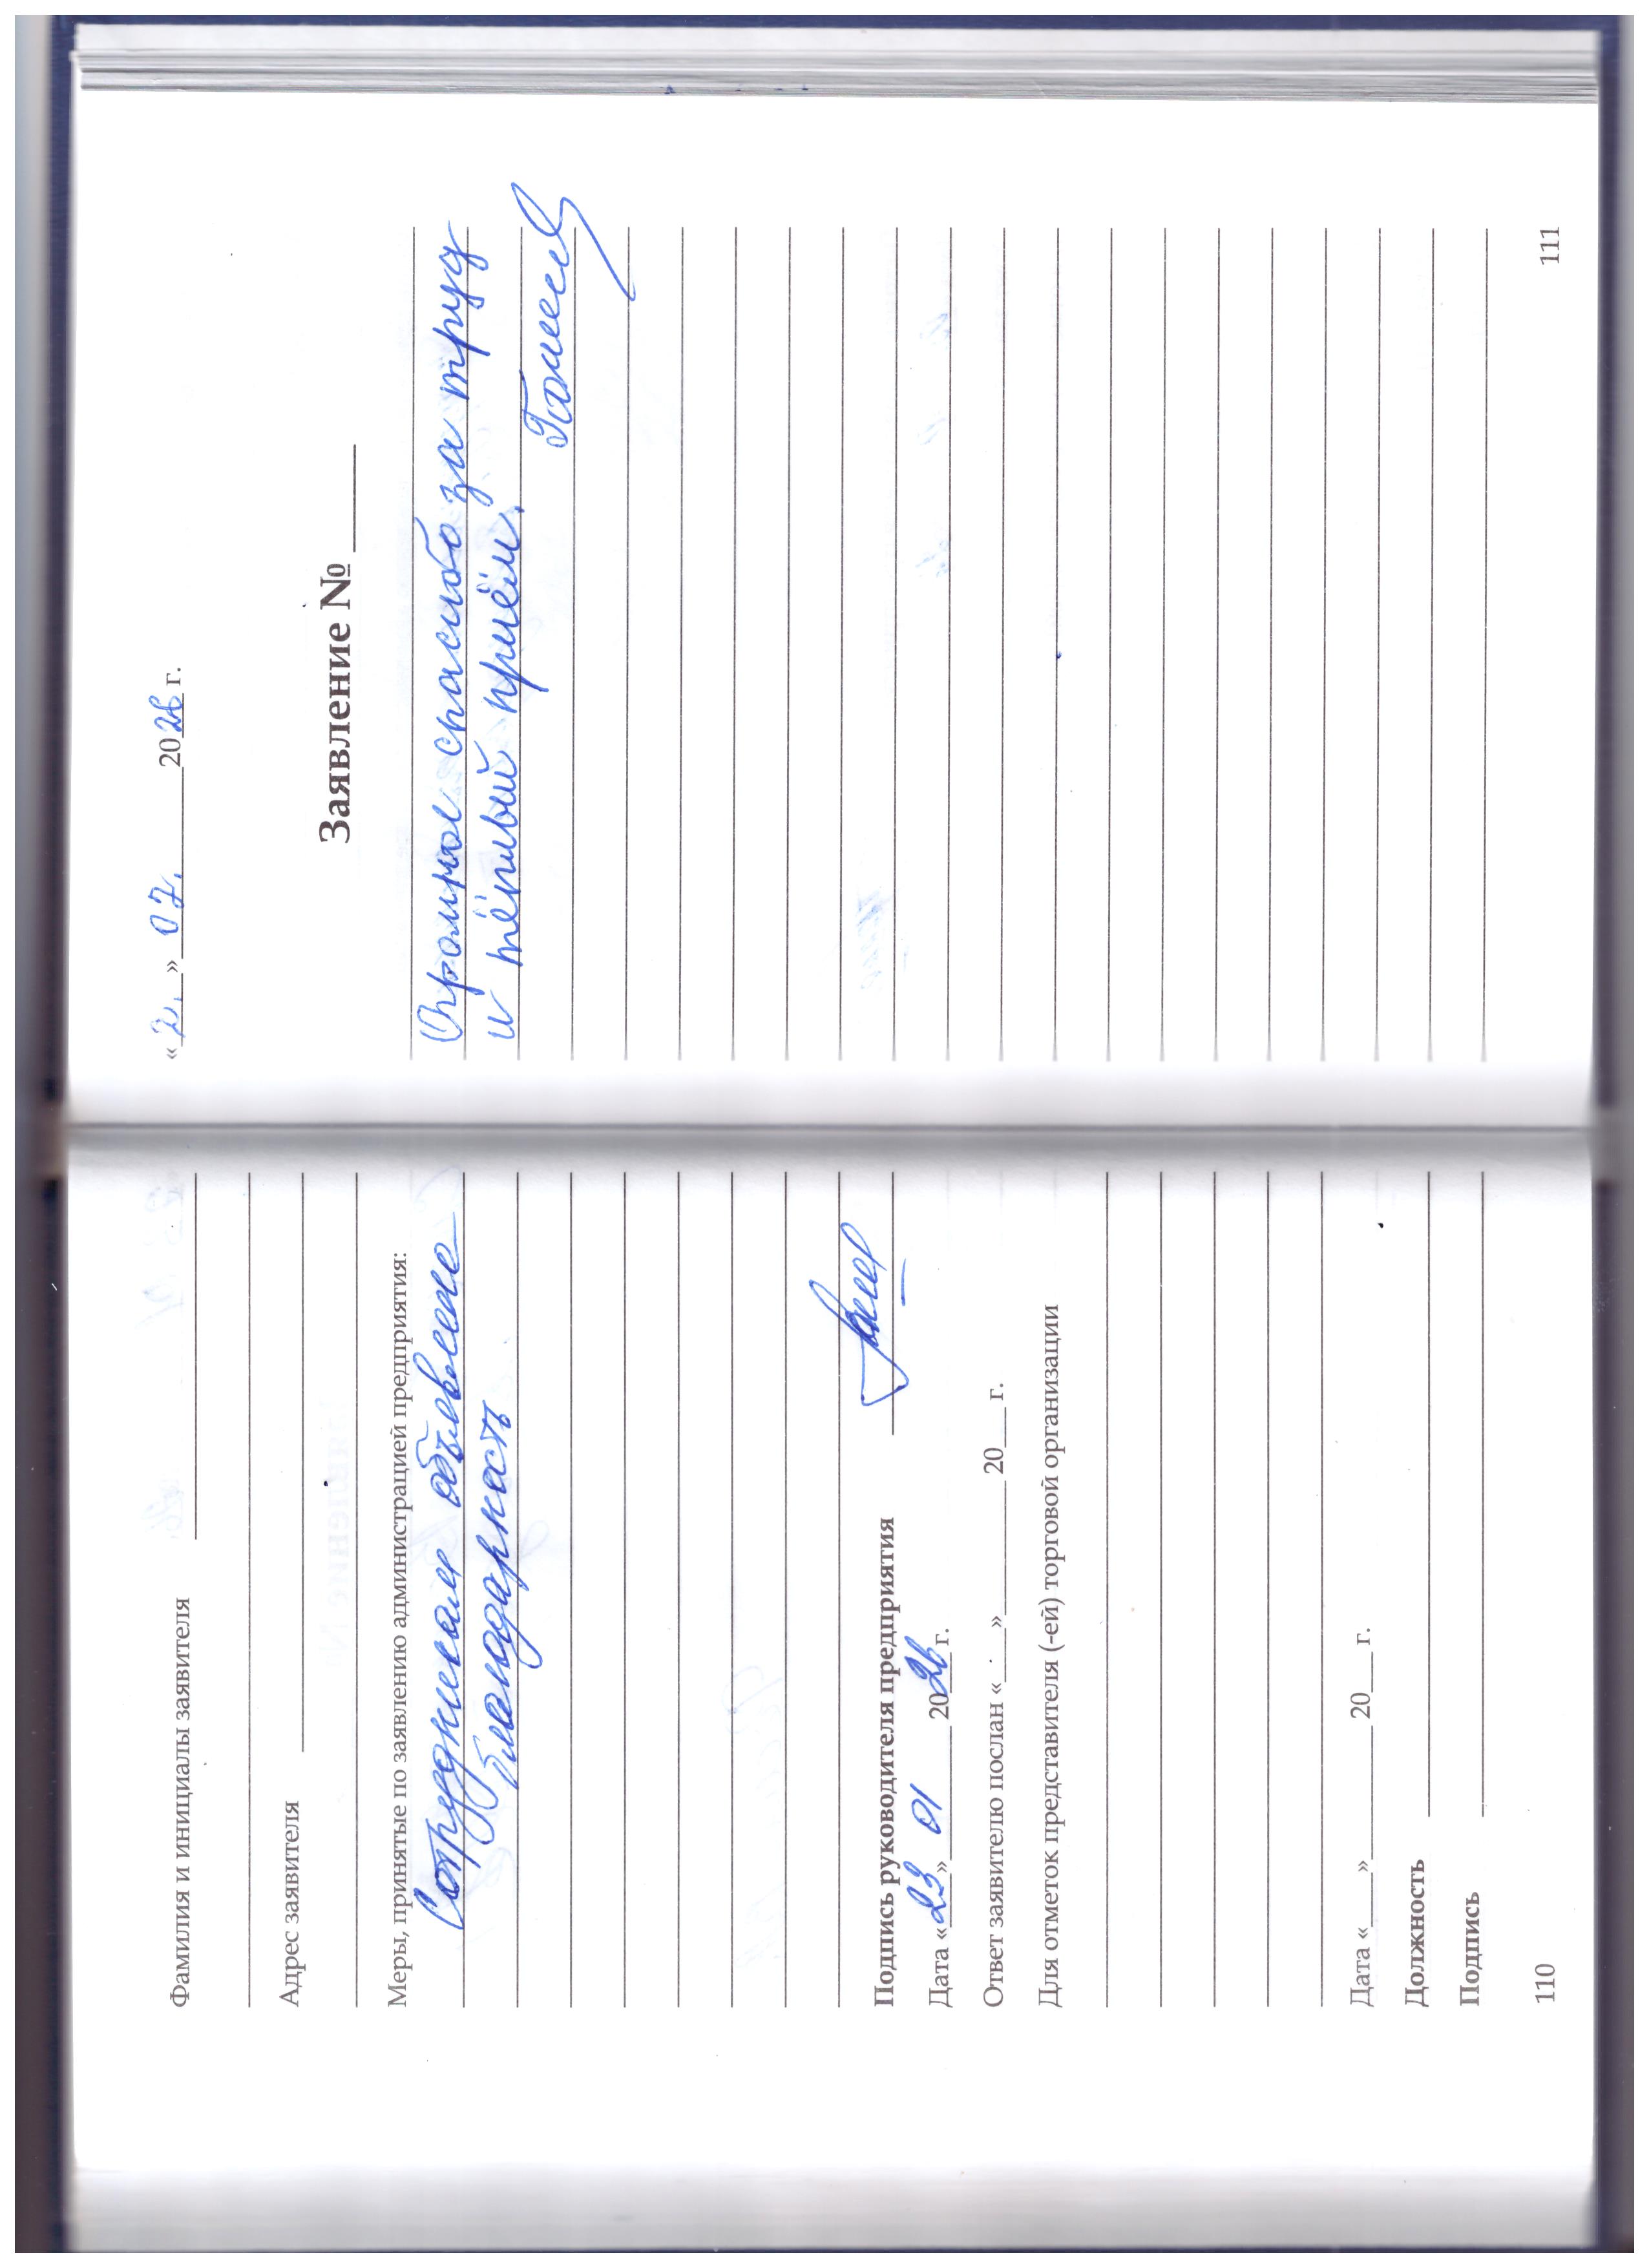 Фамилия и инициалы заявителя
Адрес заявителя
Меры, принятые по заявлению администрацией предприятия:
Сотрудникам объявлена
благодарность
Подпись руководителя предприятия
Дата «23» 01 2026 г.
Ответ заявителю послан «___» 20__ г.
Для отметок представителя (-ей) торговой организации
Дата «____» 20__ г.
Должность
Подпись
110
«2.» 07. 2026 г.
Заявление №
Огромное спасибо за труд
и тёплый приём.
111